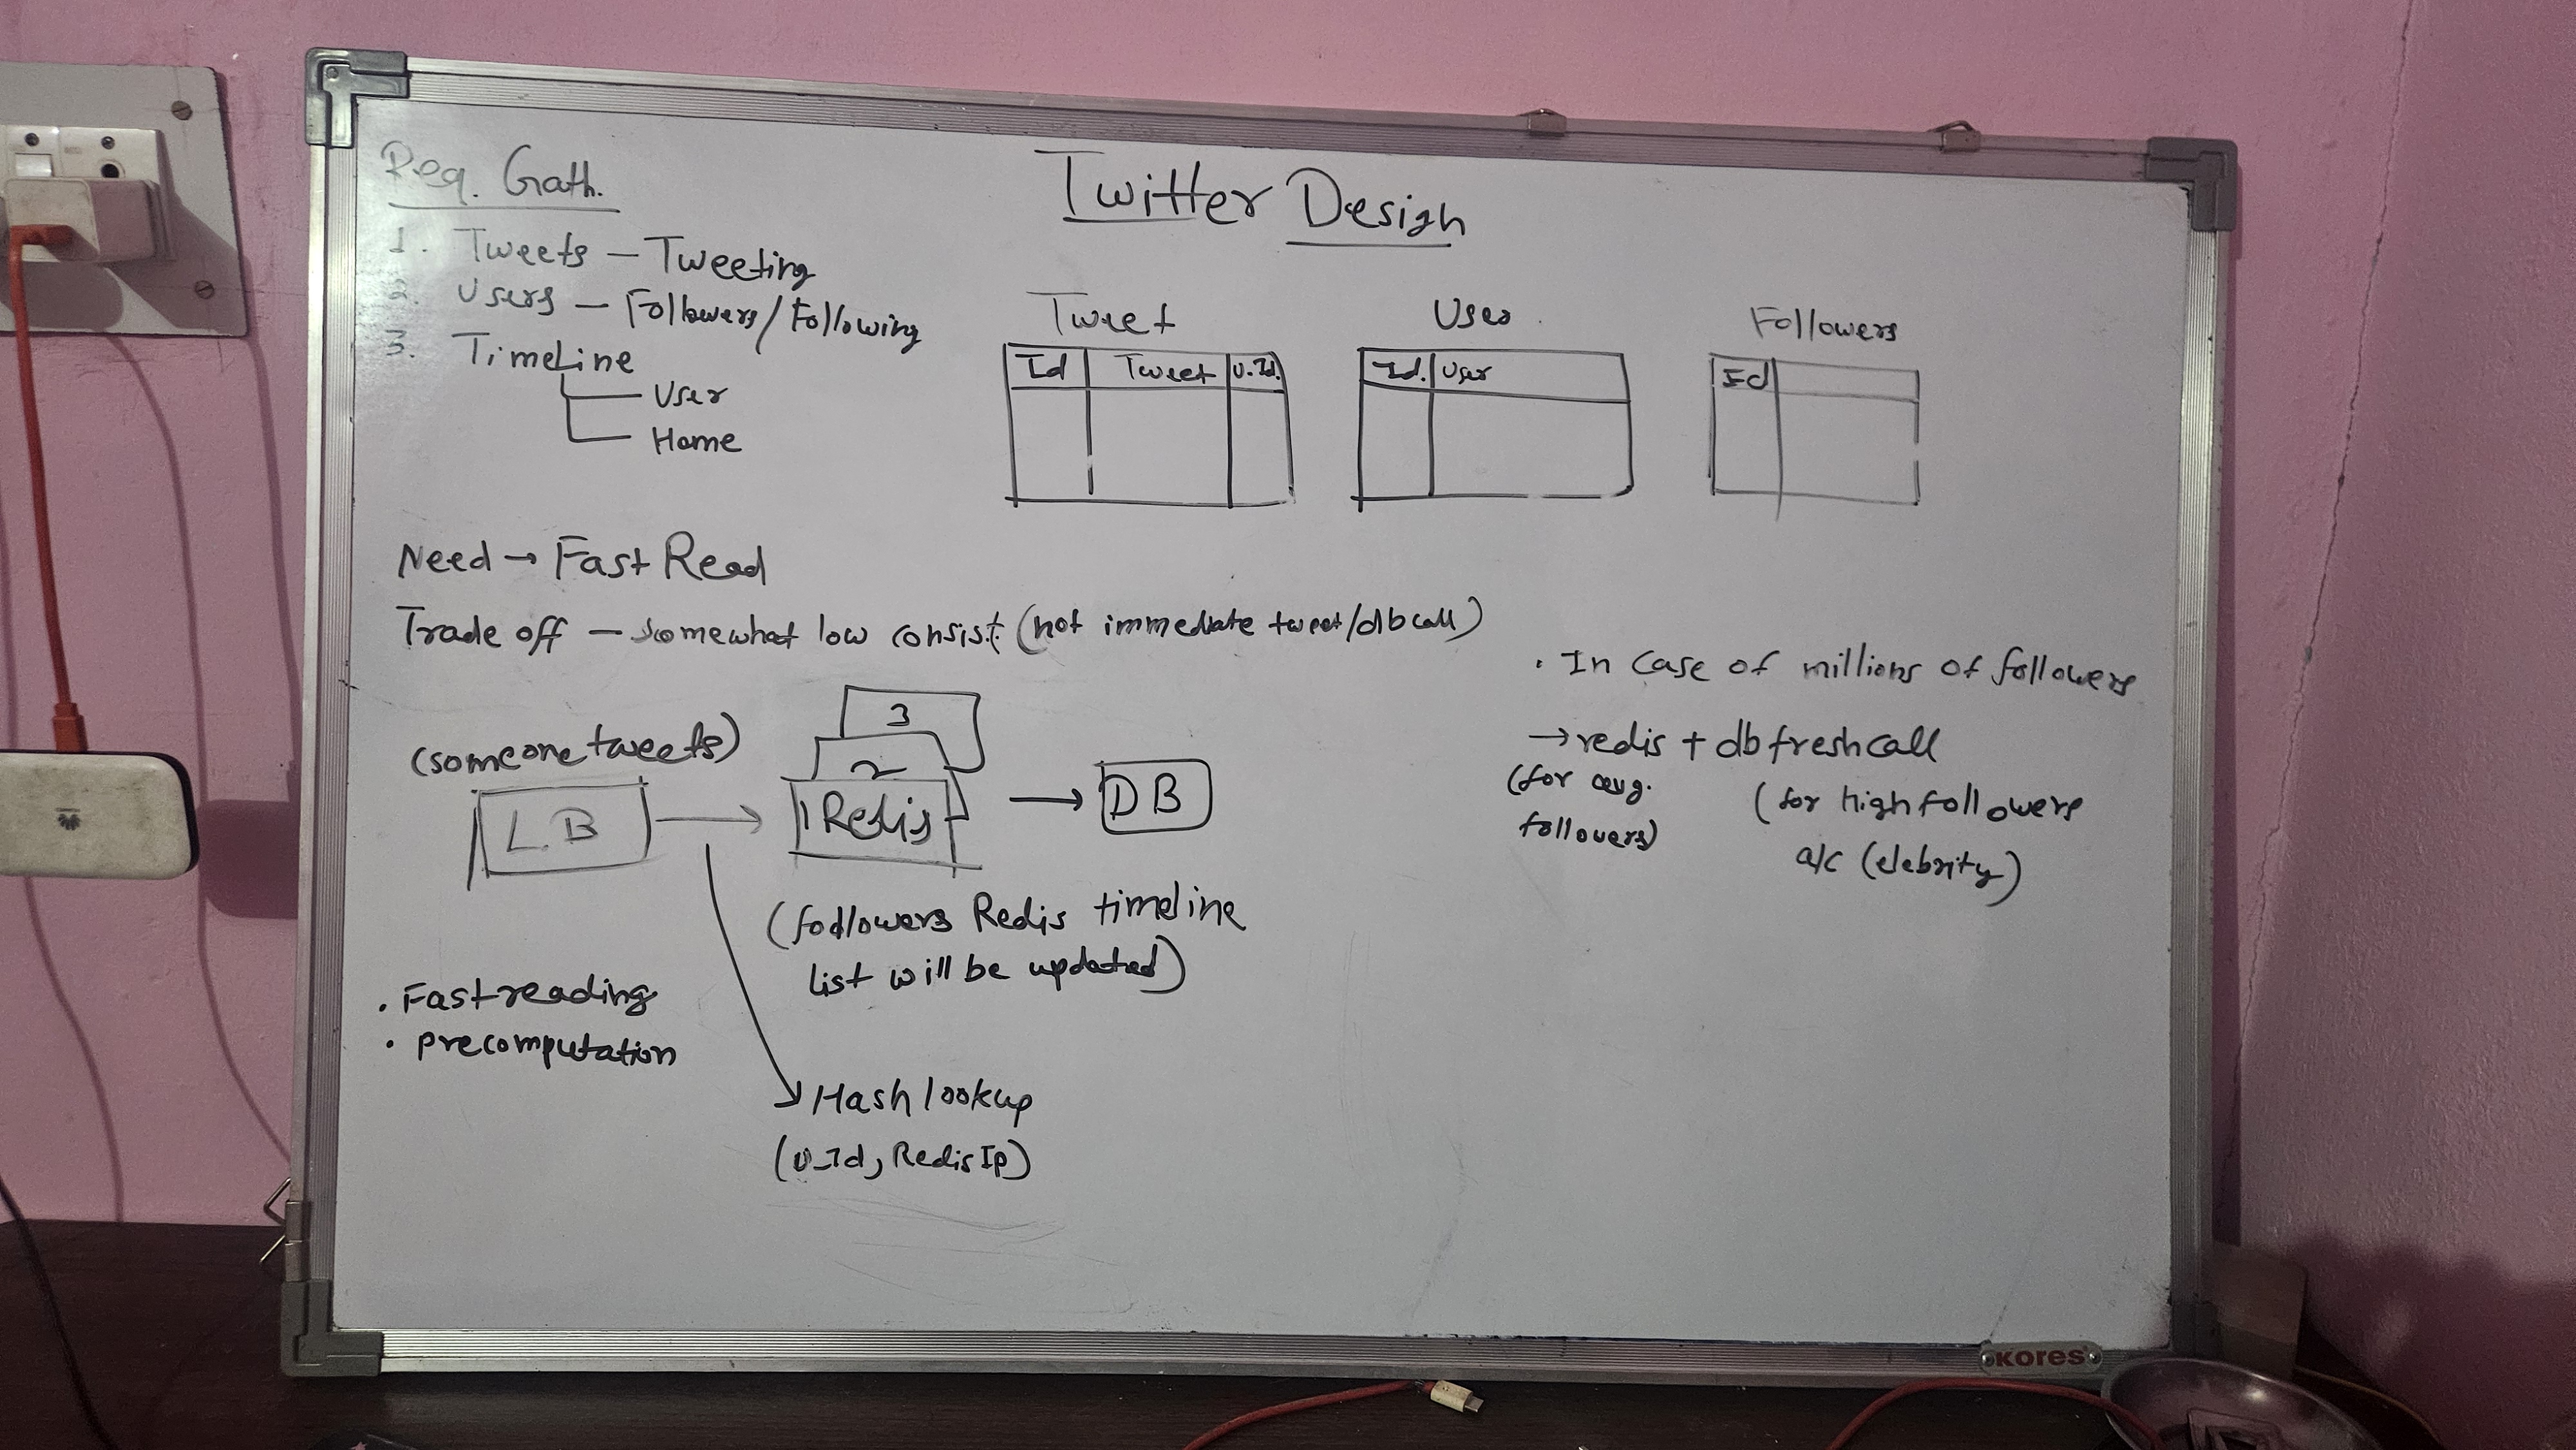 Req. Gath.
1. Tweets — Tweeting
2. Users — Followers/Following
3. Timeline
User
Home
Twitter Design
Tweet
Id Tweet U.Id.
User
Id. User
Followers
Id
Need → Fast Read
Trade off — somewhat low consist. (not immediate tweet/db call)
(someone tweets)
L.B
3
2
1 Redis
→ DB
(followers Redis timeline
list will be updated)
. Fast reading
. precomputation
Hash lookup
(U_Id, Redis Ip)
. In case of millions of followers
→ redis + db fresh call
(for avg.
followers)
(for high followers
a/c (celebrity)
KORES